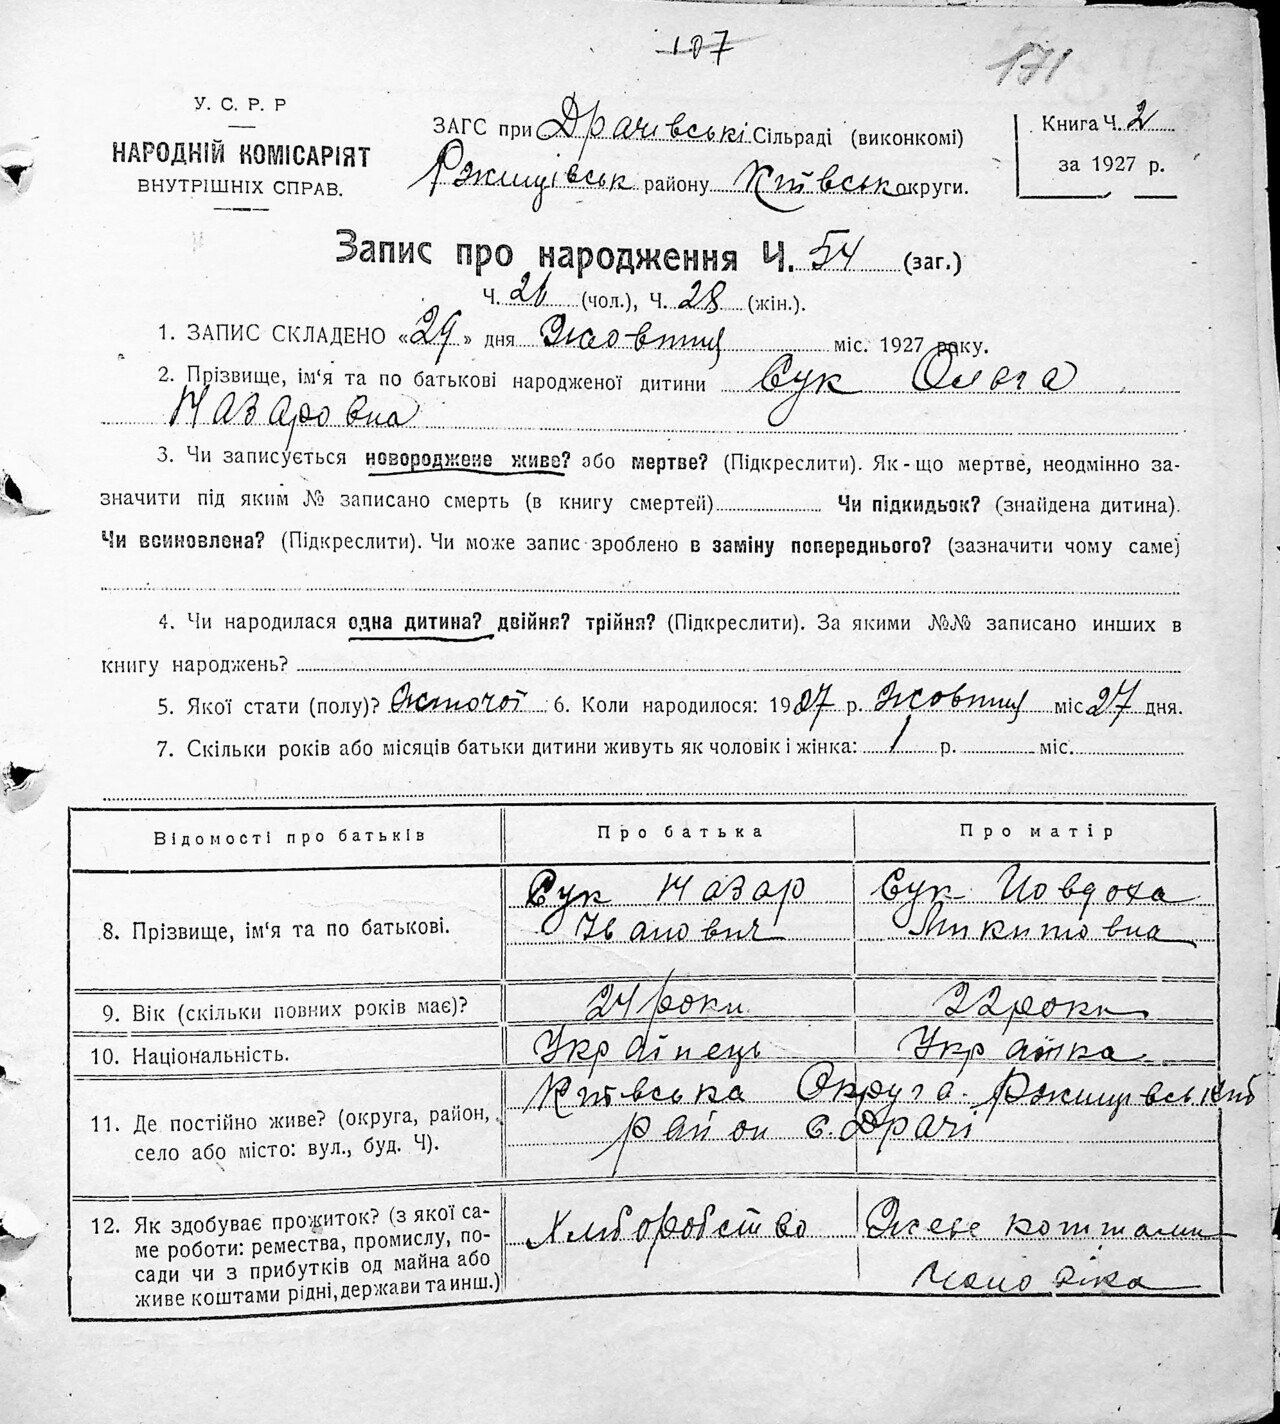 107
171
У. С. Р. Р
НАРОДНІЙ КОМІСАРІЯТ
ВНУТРІШНІХ СПРАВ.
ЗАГС при Драчівські Сільраді (виконкомі)
Ржищівськ району Київськ округи.
Книга Ч. 2
за 1927 р.
Запис про народження Ч. 54 (заг.)
Ч. 26 (чол.), Ч. 28 (жін.).
1. ЗАПИС СКЛАДЕНО «29» дня Жовтня міс. 1927 року.
2. Прізвище, ім'я та по батькові народженої дитини Сук Ольга
Назаровна
3. Чи записується новороджене живе? або мертве? (Підкреслити). Як-що мертве, неодмінно за-
значити під яким № записано смерть (в книгу смертей) Чи підкидьок? (знайдена дитина).
Чи всиновлена? (Підкреслити). Чи може запис зроблено в заміну попереднього? (зазначити чому саме)
4. Чи народилася одна дитина? двійня? трійня? (Підкреслити). За якими №№ записано инших в
книгу народжень?
5. Якої стати (полу)? Жіночої 6. Коли народилося: 1927 р. Жовтня міс. 27 дня.
7. Скільки років або місяців батьки дитини живуть як чоловік і жінка: 1 р. міс.
Відомості про батьків Про батька Про матір
8. Прізвище, ім'я та по батькові.
Сук Назар
Іванович
Сук Йовдоха
Микитовна
9. Вік (скільки повних років має)? 24 роки 22 роки
10. Національність. Українець Українка
11. Де постійно живе? (округа, район,
село або місто: вул., буд. Ч).
Київська Округа. Ржищівський
район с. Драчі
12. Як здобуває прожиток? (з якої са-
ме роботи: ремества, промислу, по-
сади чи з прибутків од майна або
живе коштами рідні, держави та инш.)
Хліборобство
Живе коштами
Чоловіка